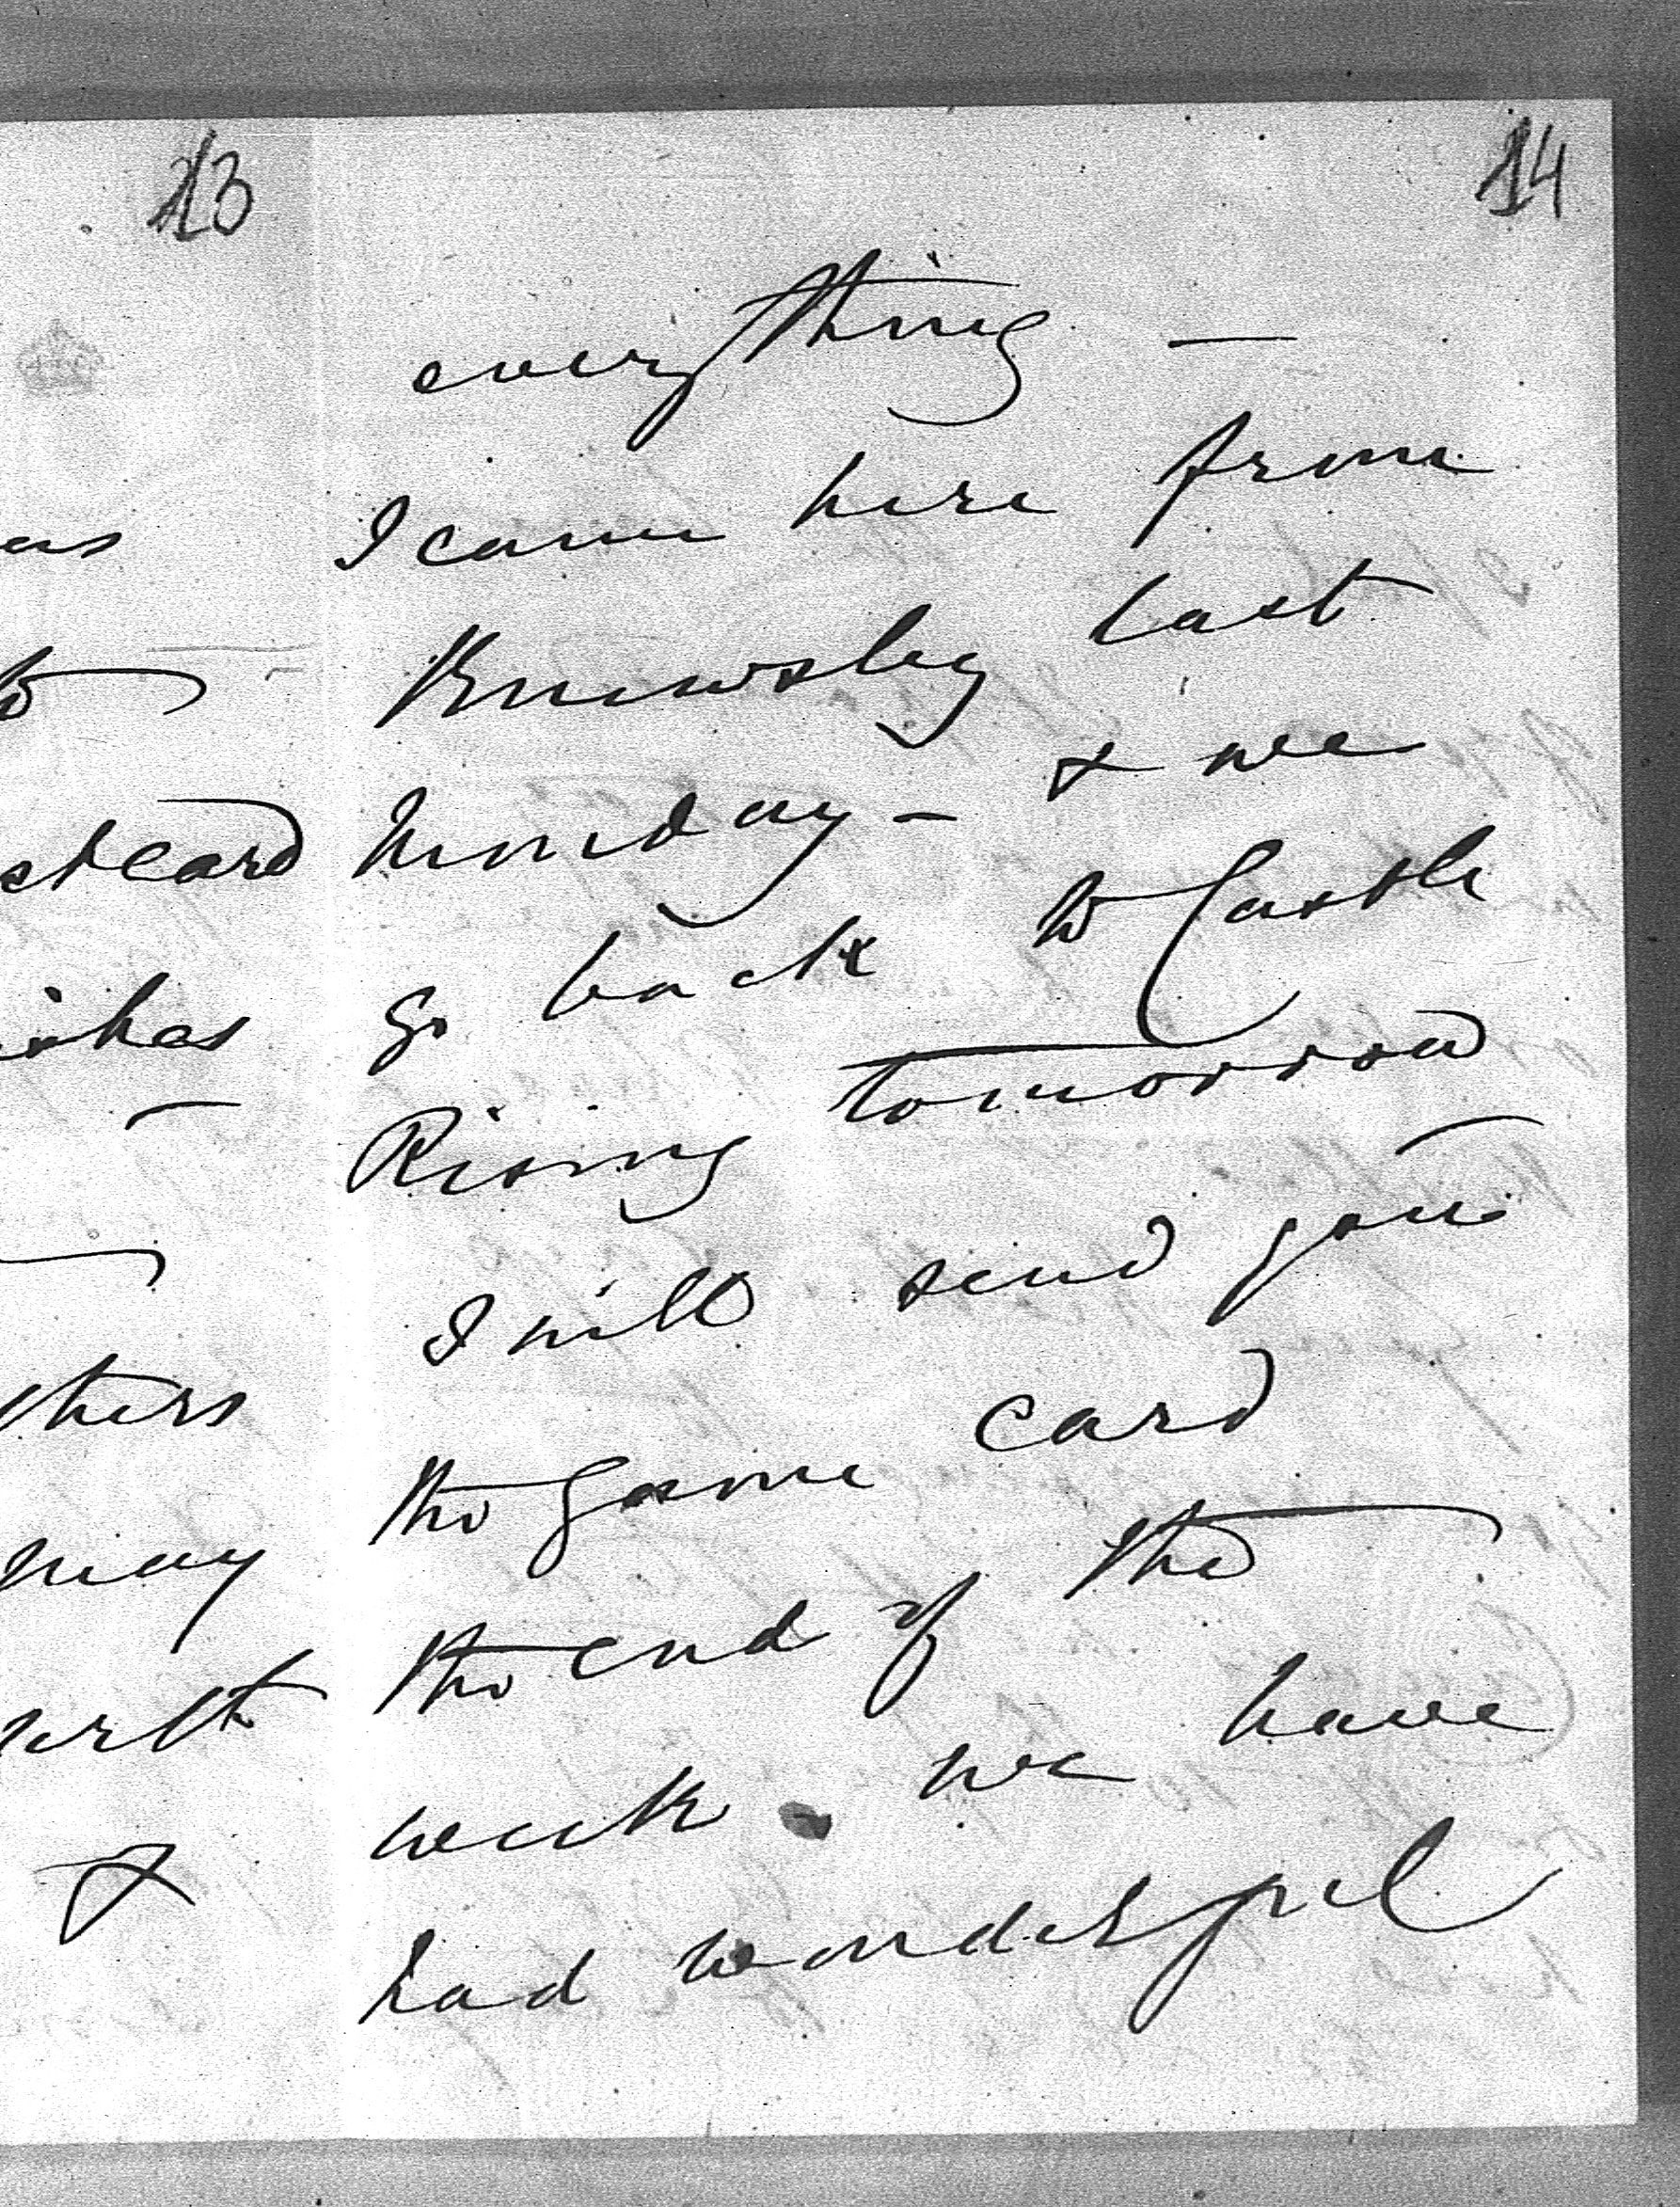 13
as
to
heard
shes
thers
may
&
14
everything —
I came here from
Knowsley last
Monday - & we
go back to Castle
Rising tomorrow
I will send you
the Game card
the end of the
week. We have
had wonderful